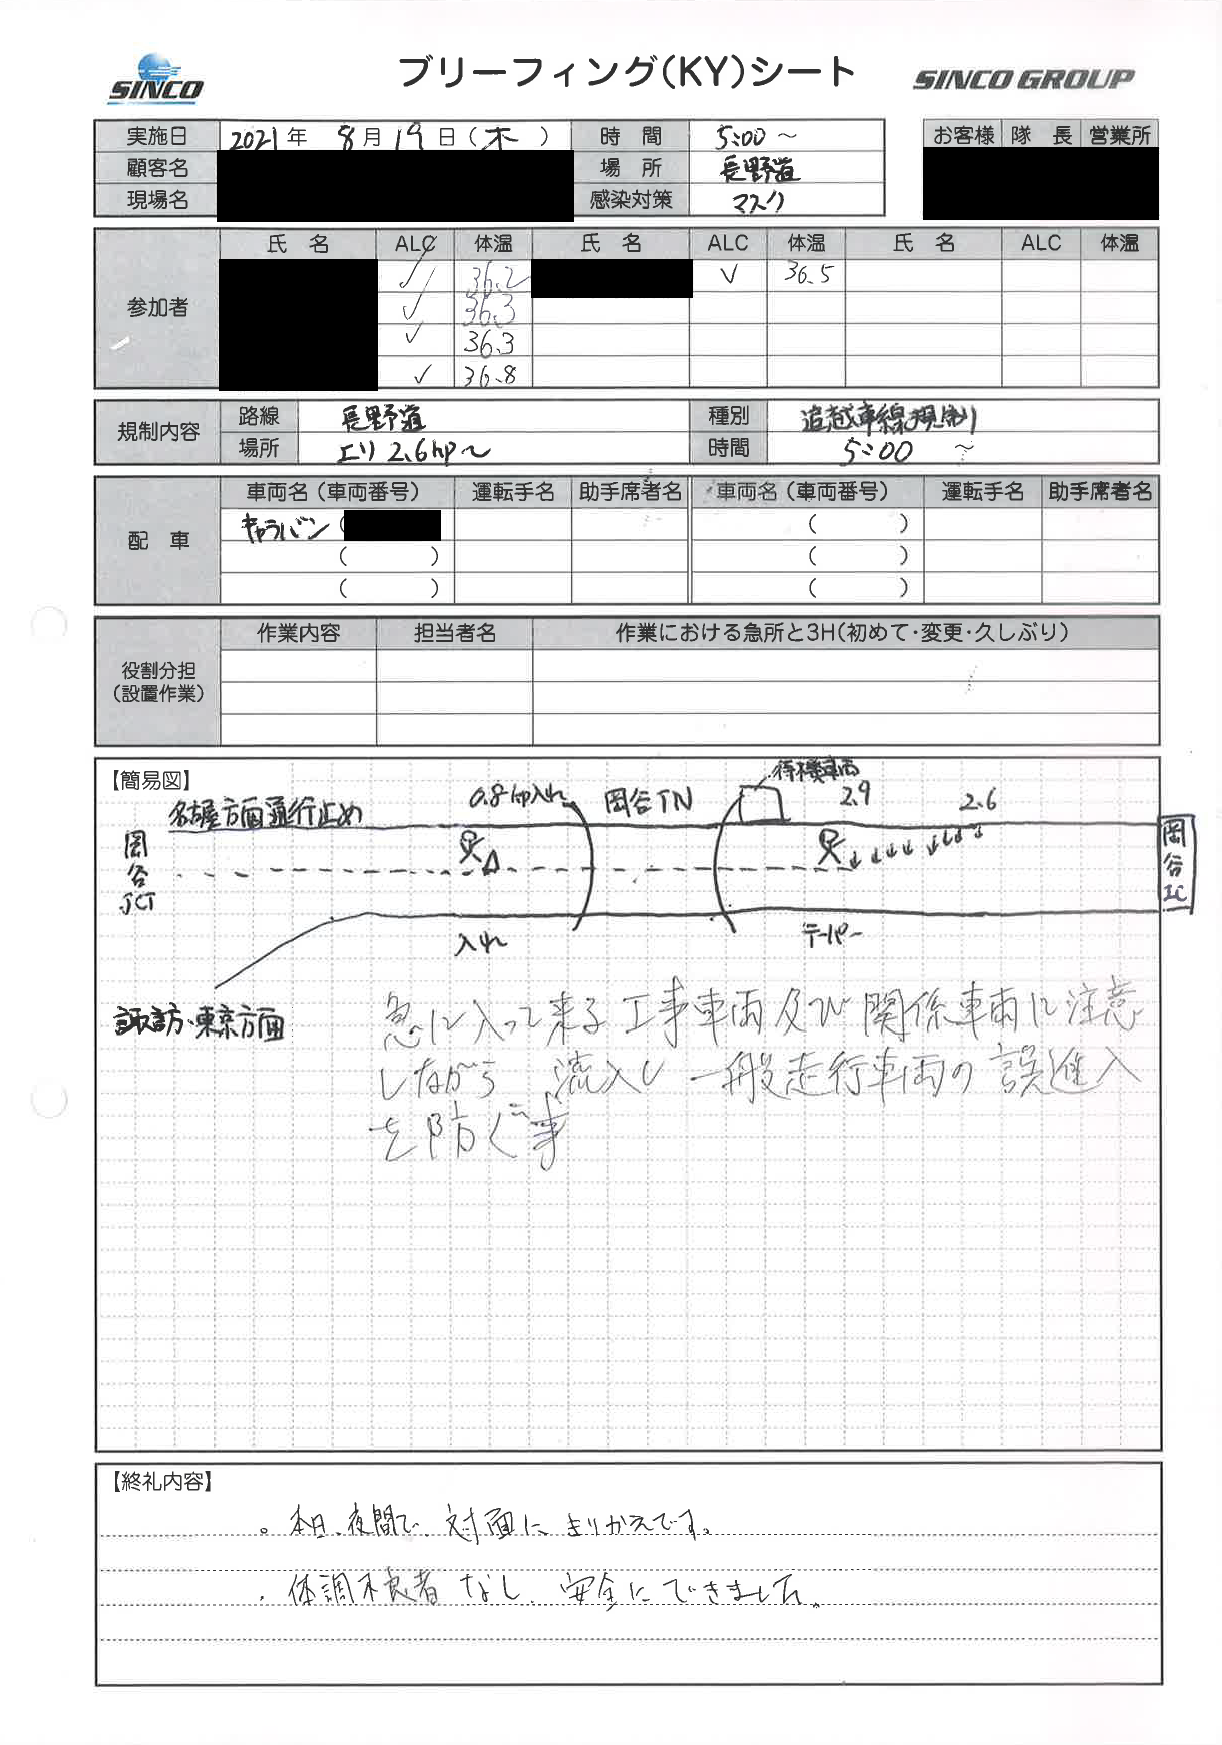 SINCO
ブリーフィング(KY)シート
SINCO GROUP
実施日 2021年 8月19日(木) 時間 5:00～
お客様 隊長 営業所
顧客名 場所 長野道
現場名 感染対策 マスク
参加者
氏名 ALC 体温 氏名 ALC 体温 氏名 ALC 体温
✓ 36.2 ✓ 36.5
✓ 36.3
✓ 36.3
✓ 36.8
規制内容
路線 長野道 種別 追越車線規制
場所 上り 2.6kp～ 時間 5:00 ～
配車
車両名(車両番号) 運転手名 助手席者名 車両名(車両番号) 運転手名 助手席者名
キャラバン ( ( )
( ) ( )
( ) ( )
役割分担
(設置作業)
作業内容 担当者名 作業における急所と3H(初めて・変更・久しぶり)
【簡易図】
待機車両
名古屋方面通行止め 0.8kp入れ 岡谷TN 2.9 2.6
岡谷JCT
岡谷IC
入れ テーパー
諏訪・東京方面
急に入って来る工事車両及び関係車両に注意
しながら 流入し 一般走行車両の誤進入
を防ぐ事
【終礼内容】
。本日、夜間で、対面に、きりかえです。
・体調不良者なし、安全にできました。